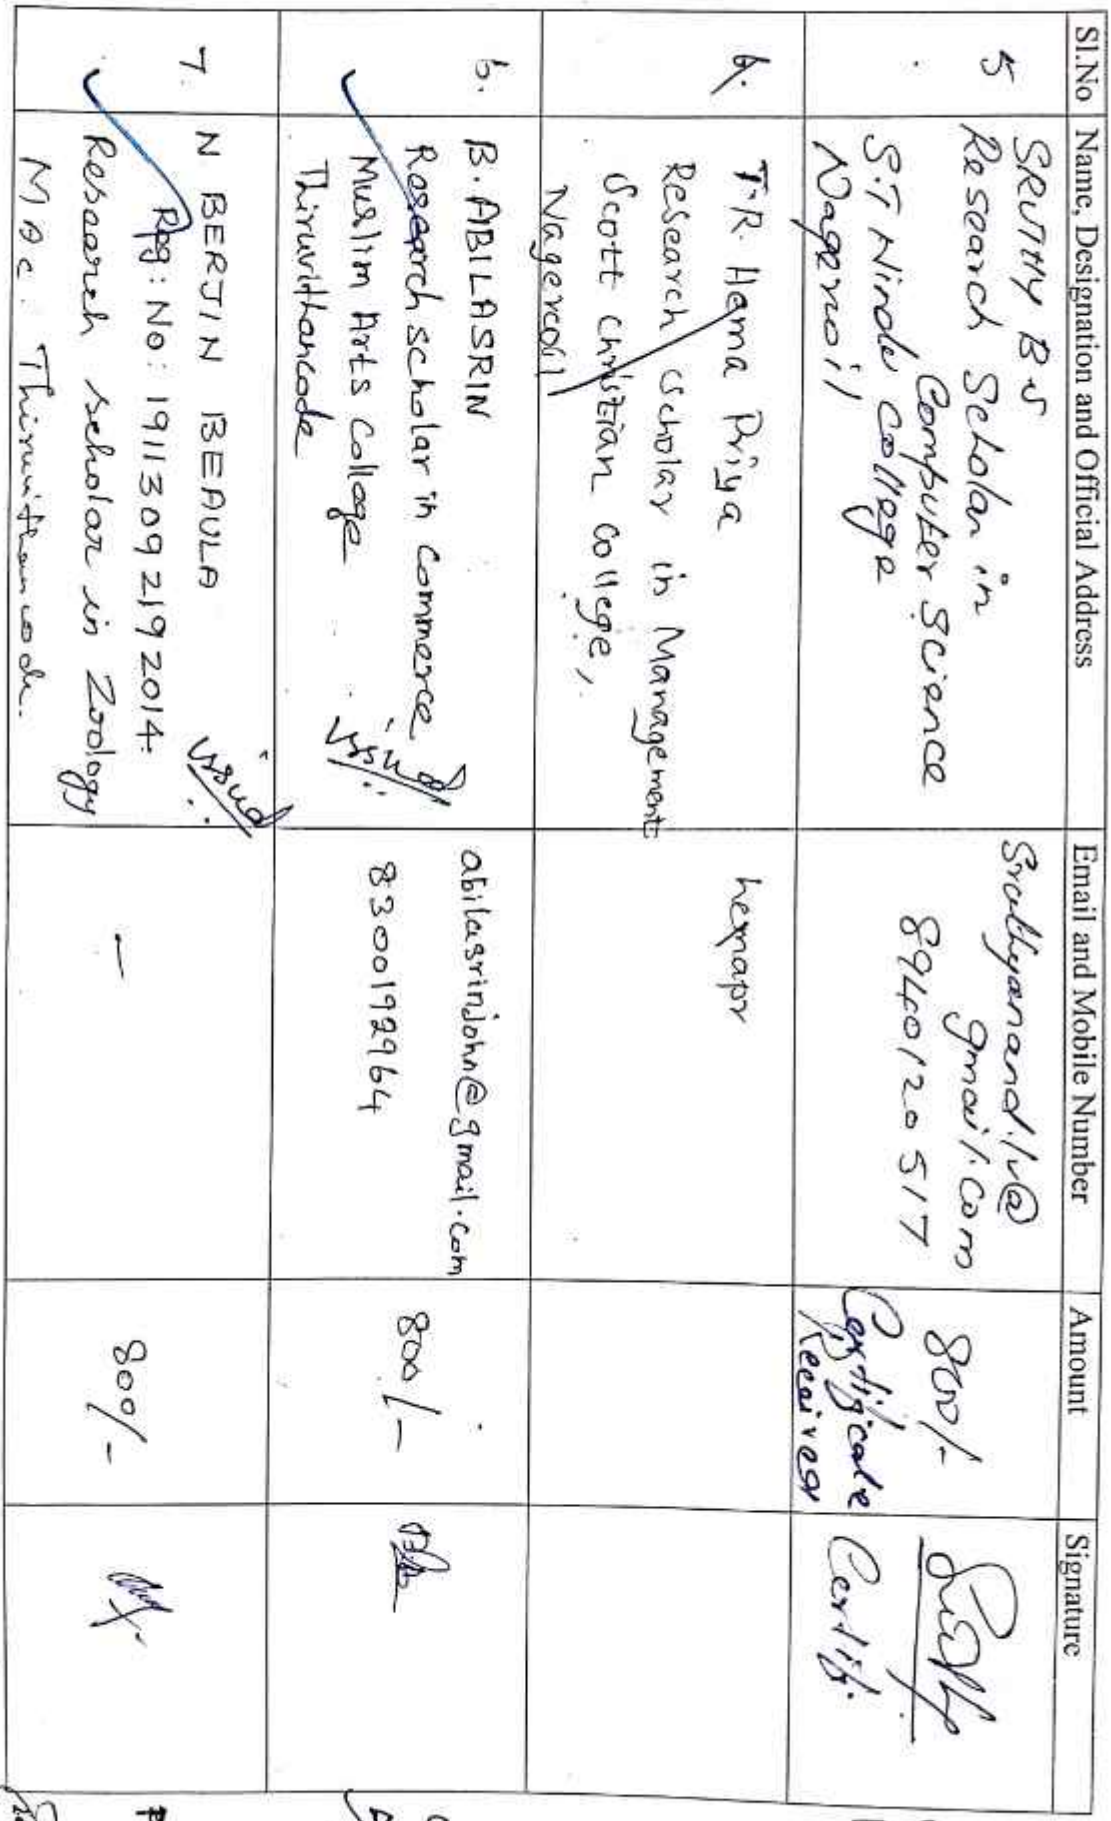 Sl.No Name, Designation and Official Address Email and Mobile Number Amount Signature
5
Research Scholar in
Computer Science
S.T Hindu College
Nagercoil
gmail.com
8940120517
800/-
Certificate
Received
Certifi.
6.
T.R. Hema Priya
Research scholar in Management
Scott christian college,
Nagercoil
hemapr
6.
B. ABILASRIN
Research scholar in Commerce
Muslim Arts College
Thiruvithancode
issued
abilasrinjohn@gmail.com
8300192964
800/-
7.
N BERJIN BEAULA
Reg: No: 19113092192014.
Research scholar in Zoology
MAC. Thiruvithancode.
issued
—
800/-